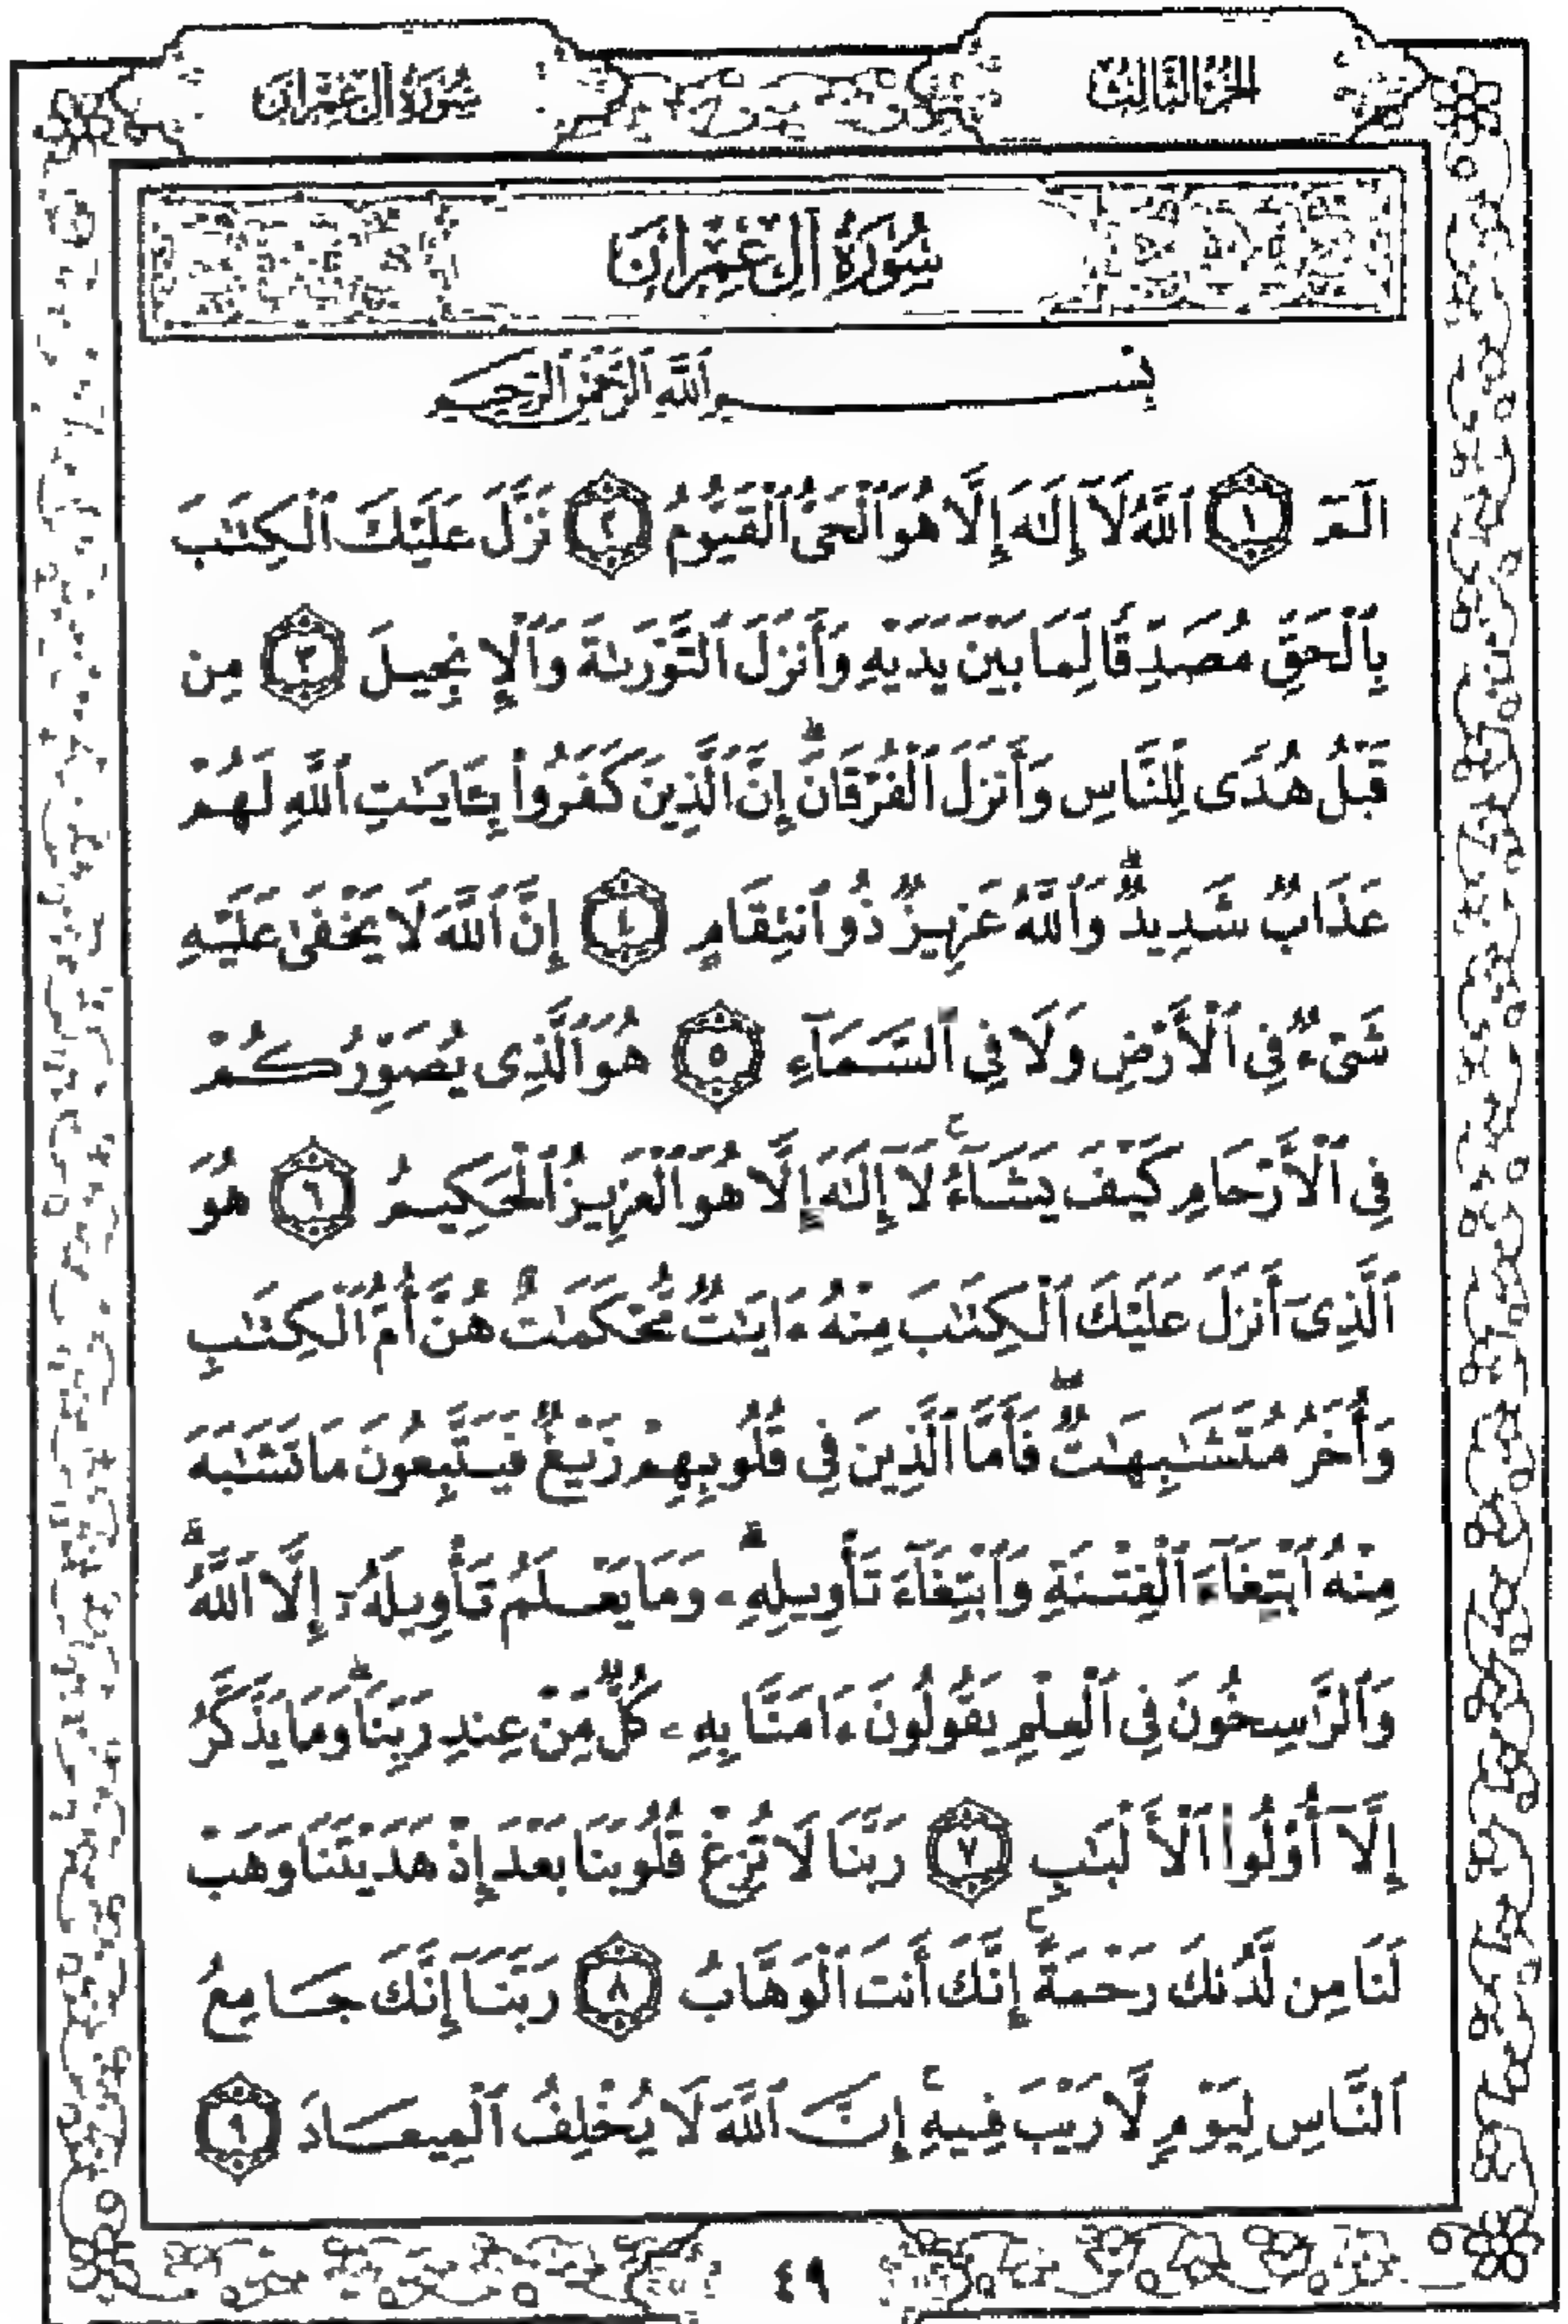 الجزء الثالث
سورة آل عمران
سُورَةُ آلِ عِمْرَانَ
بِسْمِ ٱللَّهِ ٱلرَّحْمَٰنِ ٱلرَّحِيمِ
الٓمٓ ١ ٱللَّهُ لَآ إِلَٰهَ إِلَّا هُوَ ٱلْحَىُّ ٱلْقَيُّومُ ٢ نَزَّلَ عَلَيْكَ ٱلْكِتَٰبَ
بِٱلْحَقِّ مُصَدِّقًا لِّمَا بَيْنَ يَدَيْهِ وَأَنزَلَ ٱلتَّوْرَىٰةَ وَٱلْإِنجِيلَ ٣ مِن
قَبْلُ هُدًى لِّلنَّاسِ وَأَنزَلَ ٱلْفُرْقَانَۗ إِنَّ ٱلَّذِينَ كَفَرُوا۟ بِـَٔايَٰتِ ٱللَّهِ لَهُمْ
عَذَابٌ شَدِيدٌۗ وَٱللَّهُ عَزِيزٌ ذُو ٱنتِقَامٍ ٤ إِنَّ ٱللَّهَ لَا يَخْفَىٰ عَلَيْهِ
شَىْءٌ فِى ٱلْأَرْضِ وَلَا فِى ٱلسَّمَآءِ ٥ هُوَ ٱلَّذِى يُصَوِّرُكُمْ
فِى ٱلْأَرْحَامِ كَيْفَ يَشَآءُۚ لَآ إِلَٰهَ إِلَّا هُوَ ٱلْعَزِيزُ ٱلْحَكِيمُ ٦ هُوَ
ٱلَّذِىٓ أَنزَلَ عَلَيْكَ ٱلْكِتَٰبَ مِنْهُ ءَايَٰتٌ مُّحْكَمَٰتٌ هُنَّ أُمُّ ٱلْكِتَٰبِ
وَأُخَرُ مُتَشَٰبِهَٰتٌۖ فَأَمَّا ٱلَّذِينَ فِى قُلُوبِهِمْ زَيْغٌ فَيَتَّبِعُونَ مَا تَشَٰبَهَ
مِنْهُ ٱبْتِغَآءَ ٱلْفِتْنَةِ وَٱبْتِغَآءَ تَأْوِيلِهِۦۗ وَمَا يَعْلَمُ تَأْوِيلَهُۥٓ إِلَّا ٱللَّهُۗ
وَٱلرَّٰسِخُونَ فِى ٱلْعِلْمِ يَقُولُونَ ءَامَنَّا بِهِۦ كُلٌّ مِّنْ عِندِ رَبِّنَاۗ وَمَا يَذَّكَّرُ
إِلَّآ أُو۟لُوا۟ ٱلْأَلْبَٰبِ ٧ رَبَّنَا لَا تُزِغْ قُلُوبَنَا بَعْدَ إِذْ هَدَيْتَنَا وَهَبْ
لَنَا مِن لَّدُنكَ رَحْمَةًۚ إِنَّكَ أَنتَ ٱلْوَهَّابُ ٨ رَبَّنَآ إِنَّكَ جَامِعُ
ٱلنَّاسِ لِيَوْمٍ لَّا رَيْبَ فِيهِۚ إِنَّ ٱللَّهَ لَا يُخْلِفُ ٱلْمِيعَادَ ٩
٤٩